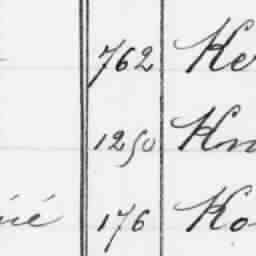 762 Ke
1250 Kn
ié 176 Ko